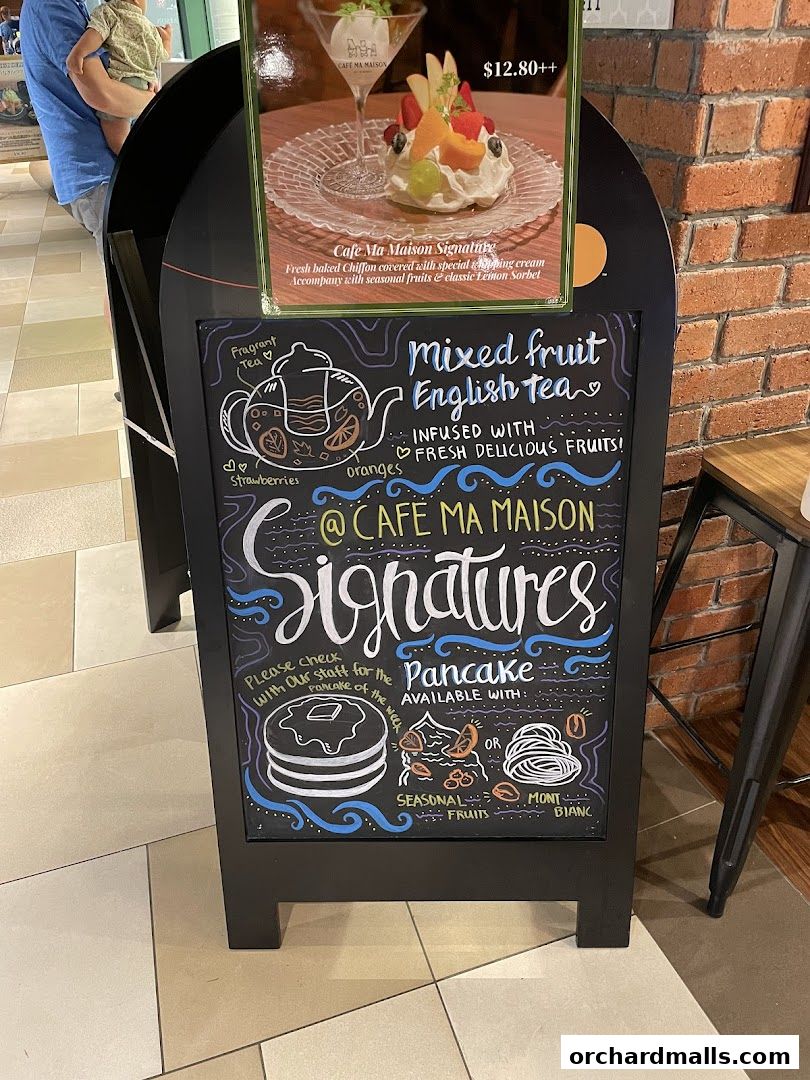 CAFE MA MAISON
$12.80++
Cafe Ma Maison Signature
Fresh baked Chiffon covered with special whipping cream
Accompany with seasonal fruits & classic Lemon Sorbet
Fragrant
Tea
Mixed fruit
English Tea
INFUSED WITH
FRESH DELICIOUS FRUITS!
Strawberries
Oranges
@ CAFE MA MAISON
Signatures
PLEASE CHECK
WITH OUR STAFF FOR THE
PANCAKE OF THE WEEK
PANCAKE
AVAILABLE WITH:
OR
SEASONAL
FRUITS
MONT
BLANC
orchardmalls.com